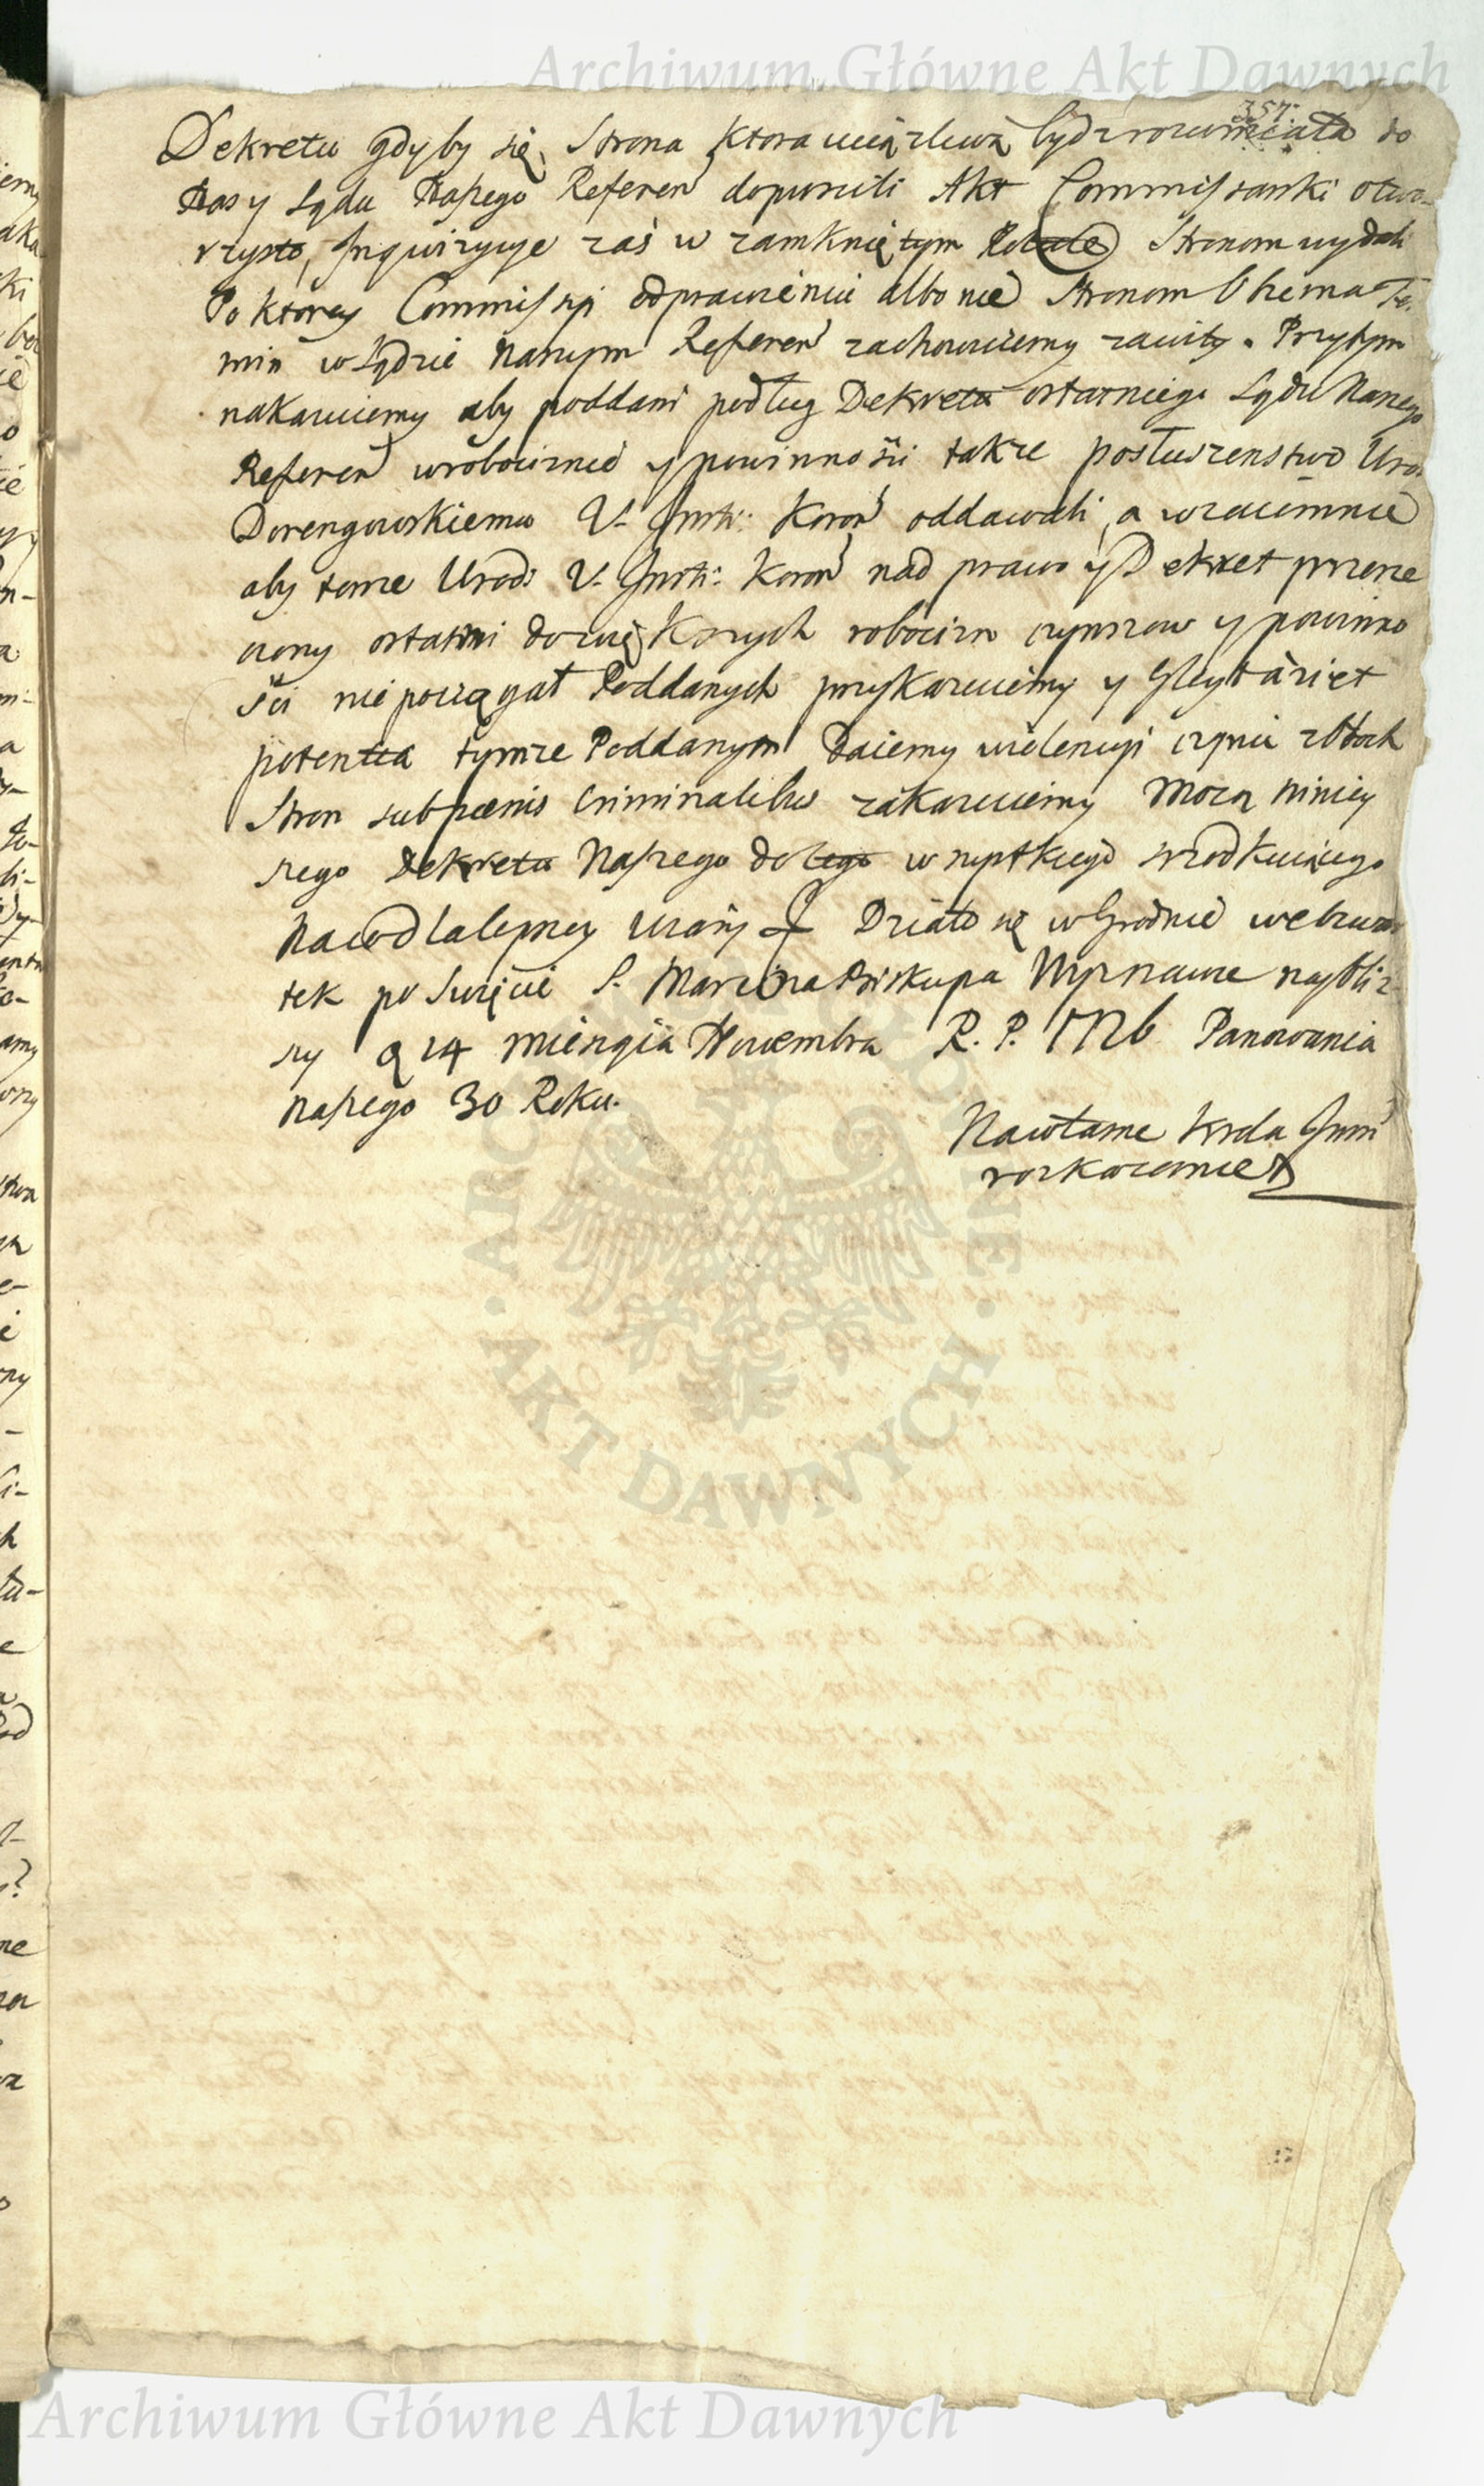 Archiwum Główne Akt Dawnych
357.
Dekretu gdyby się Strona ktora uciązliwą bydz rozumiała do
Nas y Sądu Naszego Referen dopuscili Akt Commissarski otwo-
rzysto, Inqwizycye zas w zamknietym Rotule Stronom wydali
Po ktorey Commissyi odprawieniu albo nie Stronom Obiema Ter
min w Sądzie Naszym Referen zachowuiemy zawity. Przytym
nakazuiemy aby poddani podług Dekretu ostatniego Sądu Naszego
Referen wrobociznie y powinnosci takze posłuszenstwo Uro
Dorengowskiemu V. Insti: Koron oddawali, a wzaiemnie
aby tenze Urodz V. Insti: Koron nad prawo y Dekret przerze
czony ostatni do większych robocizn czynszow y powinno
sci nie pociągał Poddanych przykazuiemy y Gleyt ariet
potentia tymze Poddanym Daiemy wiolencyi czynic z oboch
Stron sub pœnis Criminalibus zakazuiemy Mocą niniey
szego Dekretu Naszego do tego wszystkiego srzodkuiącego
na to dla lepszey wiary Działo się w Grodnie we Czwar
tek po Swięcie S. Marcina Biskupa Wyznawce naybliz
szy d 14 Miesiąca Novembra R. P. 1726 Panowania
naszego 30 Roku.
Na własne Krola Jmsci
rozkazanie
AKT DAWNYCH
Archiwum Główne Akt Dawnych